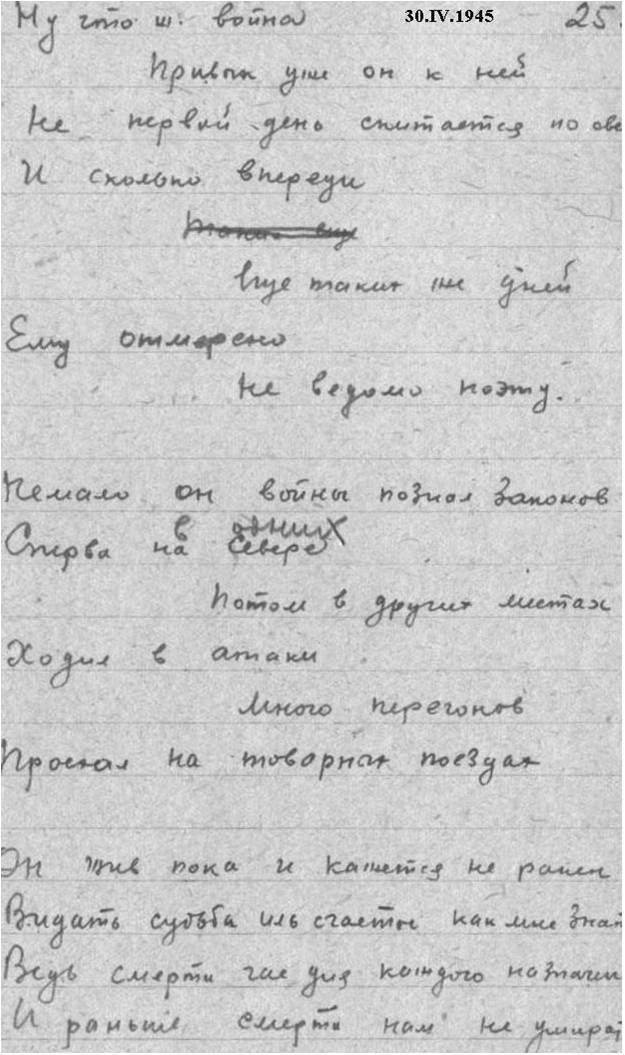 Ну что ж. война 30.IV.1945 25.
Привык уже он к ней
Не первый день считается по
И сколько впереди
Еще таких же дней
Ему отмерено
Не ведомо поэту.
Немало он войны познал законов
в одних
Сперва на Севере
Потом в других местах
Ходил в атаки
Много перегонов
Проехал на товарных поездах
Он жив пока и кажется не ранен
Видать судьба иль счастье как мне
Ведь смерти час для каждого
И раньше смерти нам не